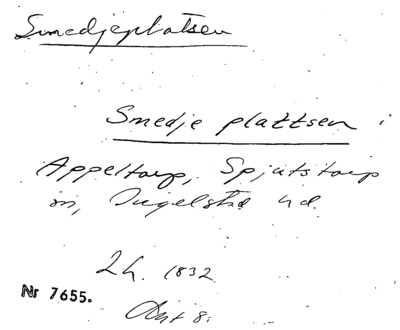 Smedjeplatsen
Smedje plattsen i
Appeltorp, Spjutstorp
sn, Ingelstad hd.
Lh. 1832
Nr 7655.
Akt 8.